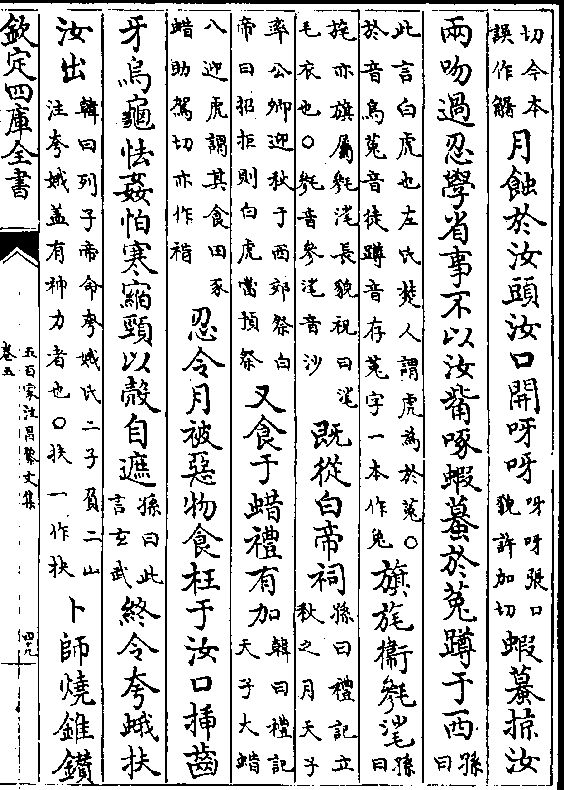 切今本
誤作觧
月蝕於汝頭汝口開呀呀
呀呀張口
貌許加切
蝦蟇掠汝
兩吻過忍學省事不以汝觜啄蝦蟇於菟蹲于西
孫
曰
此言白虎也左氏楚人謂虎為於菟○
於音烏菟音徒蹲音存菟字一本作兔
旗旄衞毿㲚
孫
曰
旄亦旗屬毿㲚長貌祝曰㲚
毛衣也○毿音參㲚音沙
既從白帝祠
孫曰禮記立
秋之月天子
率公卿迎秋于西郊祭白
帝曰招拒則白虎當預祭
又食于蜡禮有加
韓曰禮記
天子大蜡
八迎虎謂其食田豕
蜡助駕切亦作䄍
忍令月被惡物食枉于汝口揷齒
牙烏龜怯姦怕寒縮頸以殼自遮
孫曰此
言玄武
終令夸蛾抉
汝出
韓曰列子帝命夸娥氏二子負二山
注夸娥盖有神力者也○抉一作扶
卜師燒錐鑽
欽定四庫全書
五百家注昌黎文集
卷五